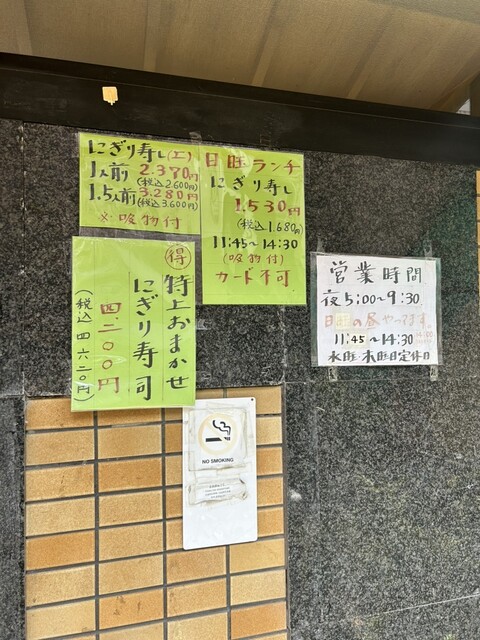 にぎり寿し(上)
1人前 2.370円
(税込2.600円)
1.5人前 3.280円
(税込3.600円)
※吸物付
日曜ランチ
にぎり寿し
1.530円
(税込1.680円)
11:45~14:30
(吸物付)
カード不可
得
特上おまかせ
にぎり寿司
四二〇〇円
(税込四六二〇円)
営業時間
夜5:00~9:30
日曜の昼やってます。
11:45~14:30
水曜 木曜日定休日
NO SMOKING